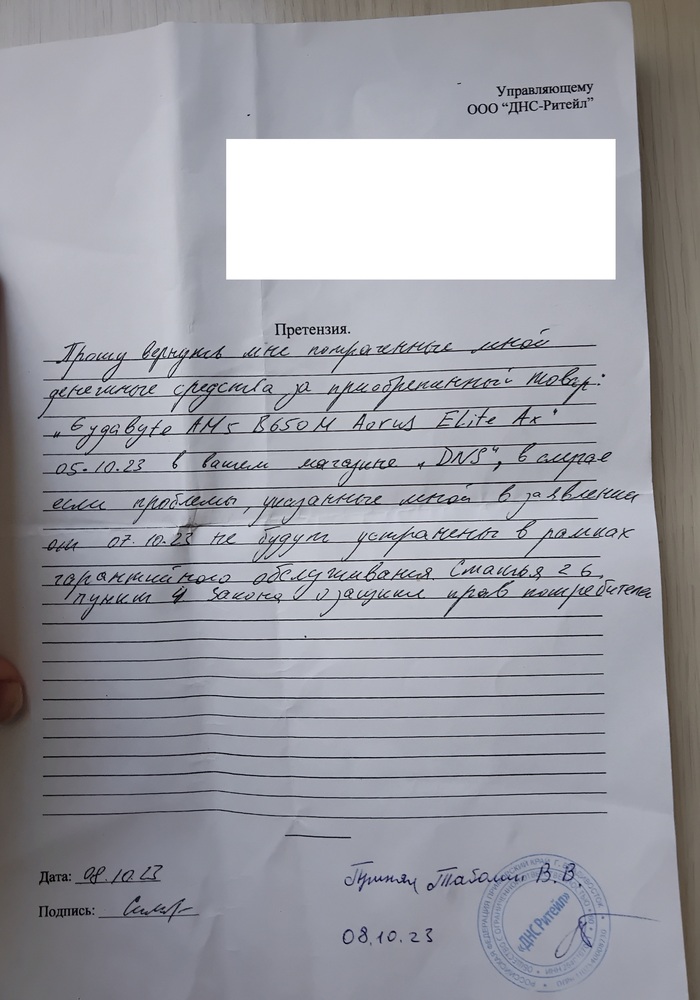 Управляющему
ООО “ДНС-Ритейл”
Претензия.
Прошу вернуть мне потраченные мной
денежные средства за приобретенный товар:
„Gygabyte AM5 B650M Aorus Elite Ax"
05.10.23 в вашем магазине „DNS", в случае
если проблемы, указанные мной в заявлении
от 07.10.23 не будут устранены в рамках
гарантийного обслуживания. Статья 26
пункт 4 Закона о защите прав потребителя
Дата: 08.10.23
Подпись:
Принял В.В.
08.10.23
«ДНС Ритейл»